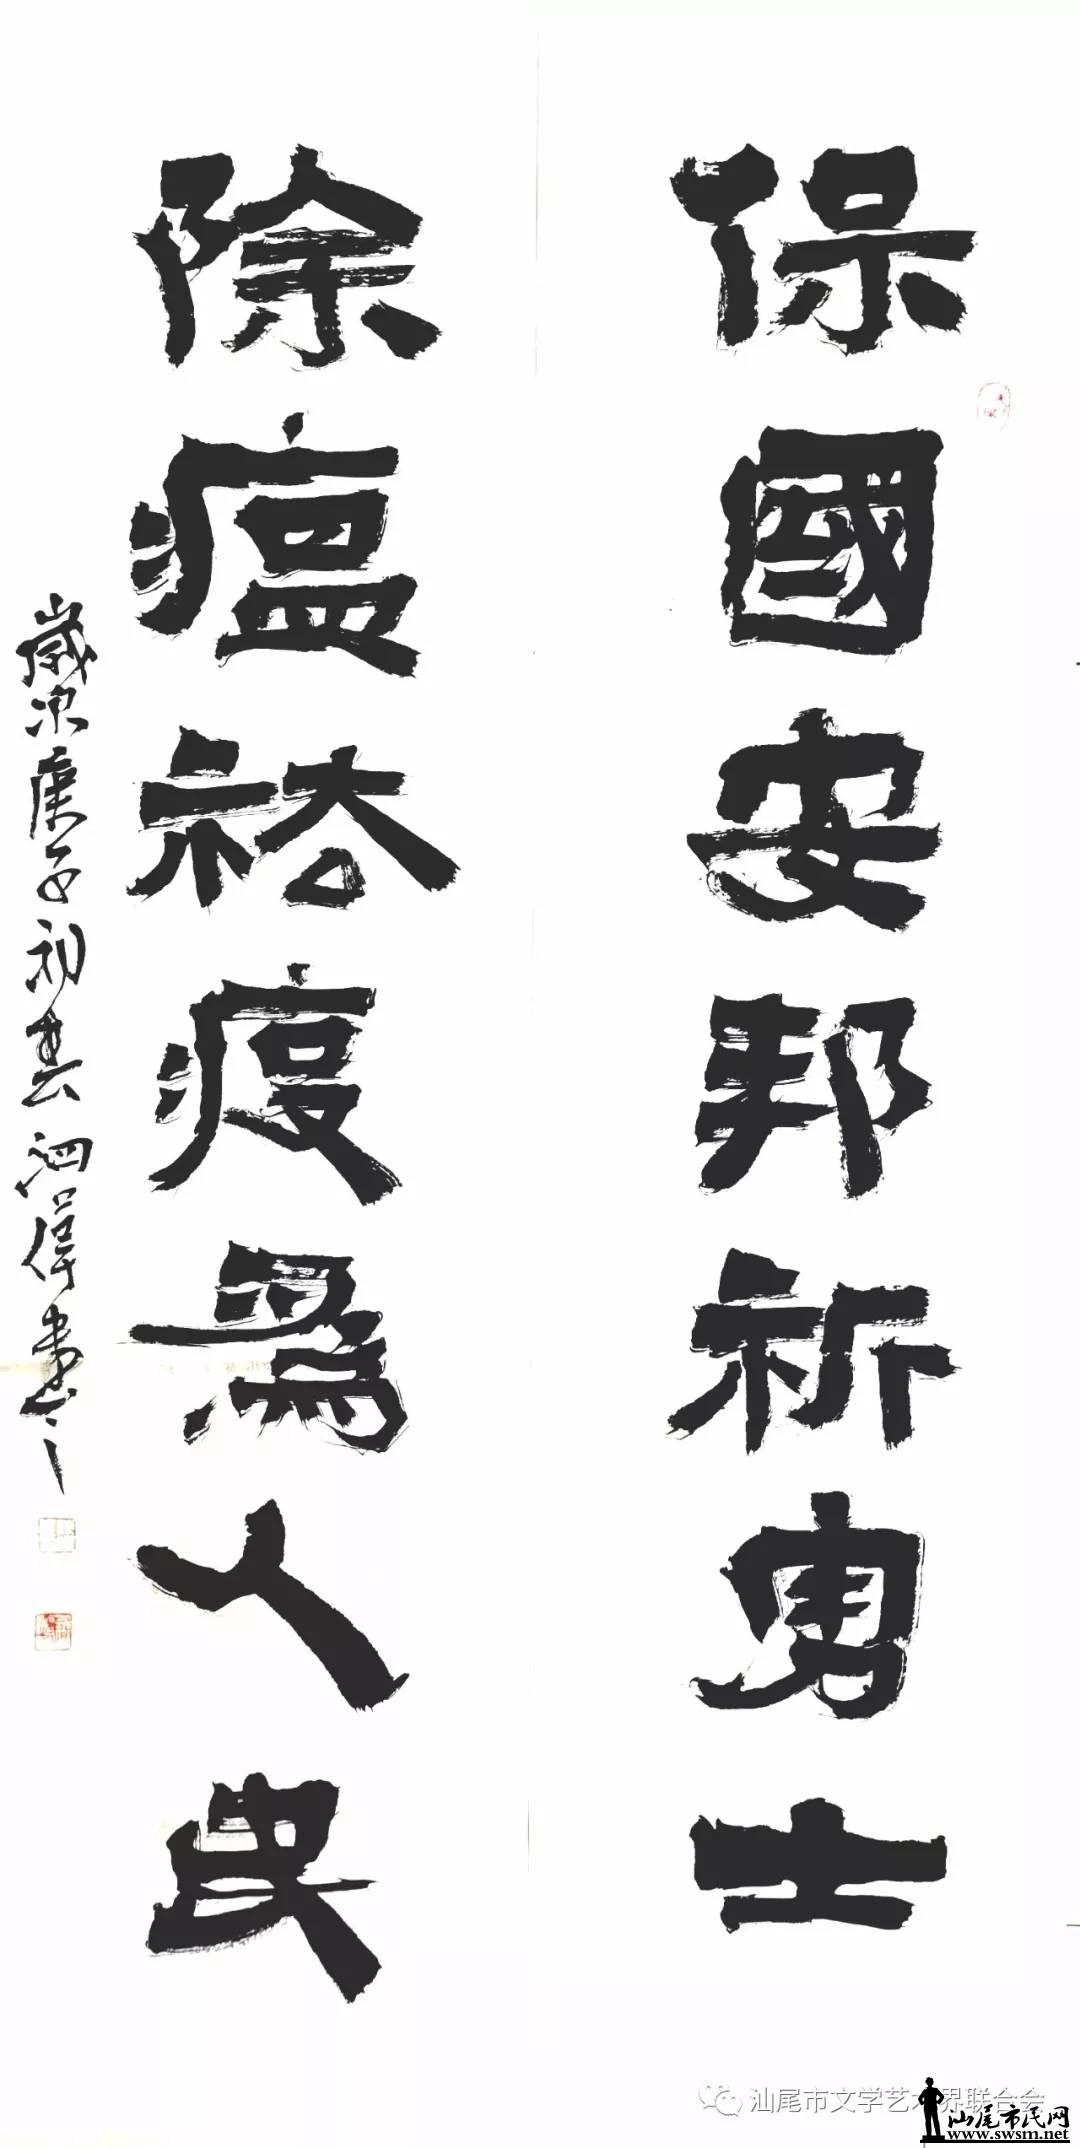 保國安邦祈勇士
除瘟祛疫爲人民
歲次庚子初春泗得書
汕尾市文学艺术界联合会
汕尾市民网
www.swsm.net